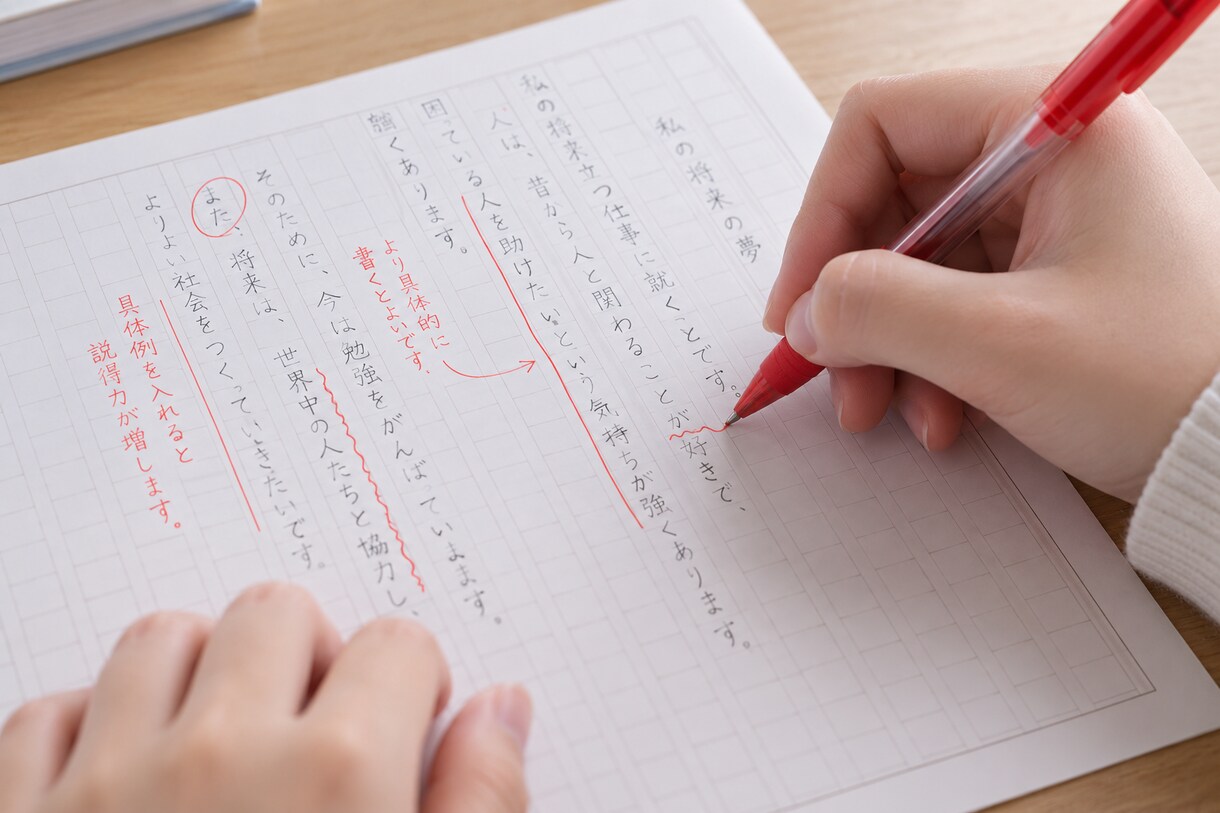 私の将来の夢
私の将来立つ仕事に就くことです。
人は、昔から人と関わることが好きで、
困っている人を助けたいという気持ちが強くあります。
くあります。
より具体的に
書くとよいです.
そのために、今は勉強をがんばています。
また、将来は、世界中の人たちと協力し、
よりよい社会をつくっていきたいです。
具体例を入れると
説得力が増します。